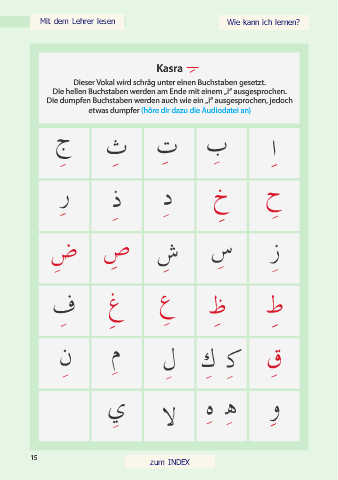 Mit dem Lehrer lesen
Wie kann ich lernen?
Kasra ـِ
Dieser Vokal wird schräg unter einen Buchstaben gesetzt.
Die hellen Buchstaben werden am Ende mit einem „i“ ausgesprochen.
Die dumpfen Buchstaben werden auch wie ein „i“ ausgesprochen, jedoch
etwas dumpfer (höre dir dazu die Audiodatei an)
اِ بِ تِ ثِ جِ
حِ خِ دِ ذِ رِ
زِ سِ شِ صِ ضِ
طِ ظِ عِ غِ فِ
قِ كِـ كِ لِ مِ نِ
وِ هِـ هِ لا يِ
15
zum INDEX